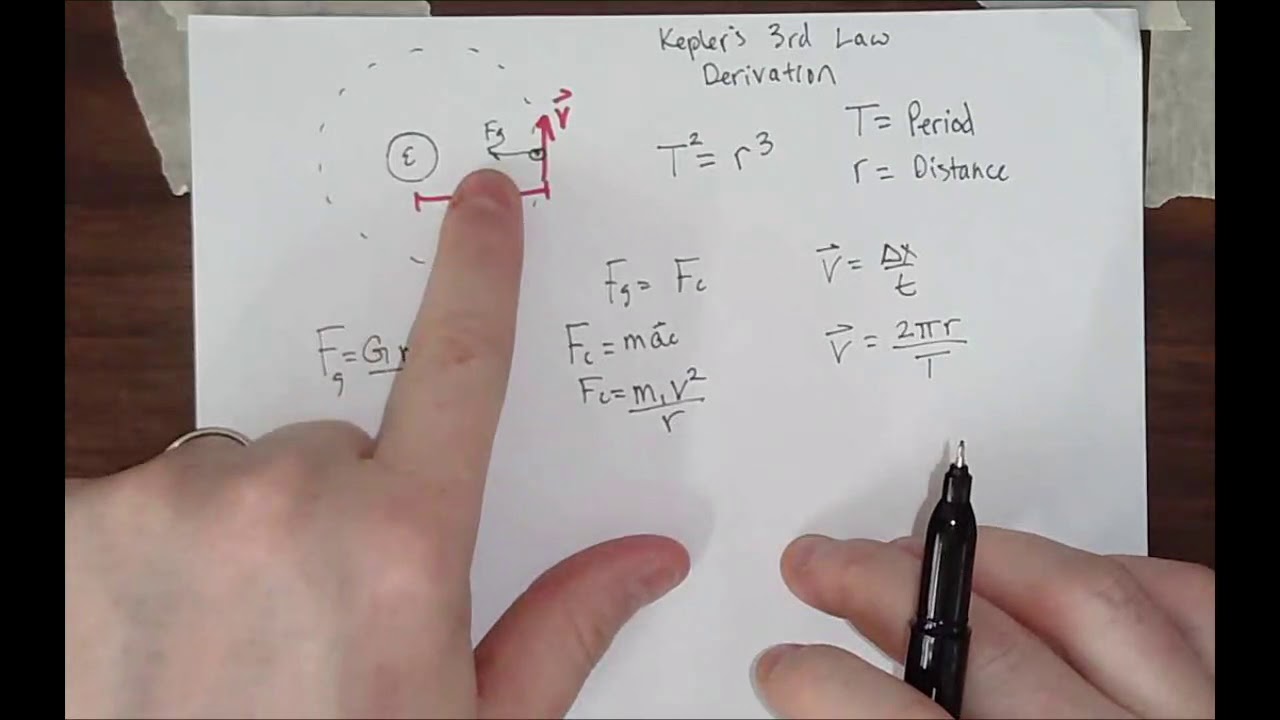 Kepler's 3rd Law
Derivation
ε
Fg
V⃗
T² = r³
T = Period
r = Distance
Fg = Fc
V⃗ = Δx/t
Fg = G
Fc = ma⃗c
V⃗ = 2πr/T
Fc = m₁v²/r